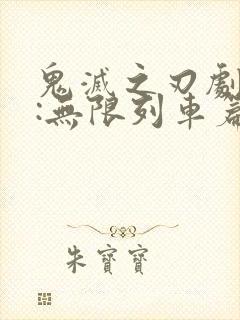 鬼滅之刃劇
:無限列車篇
朱寶寶